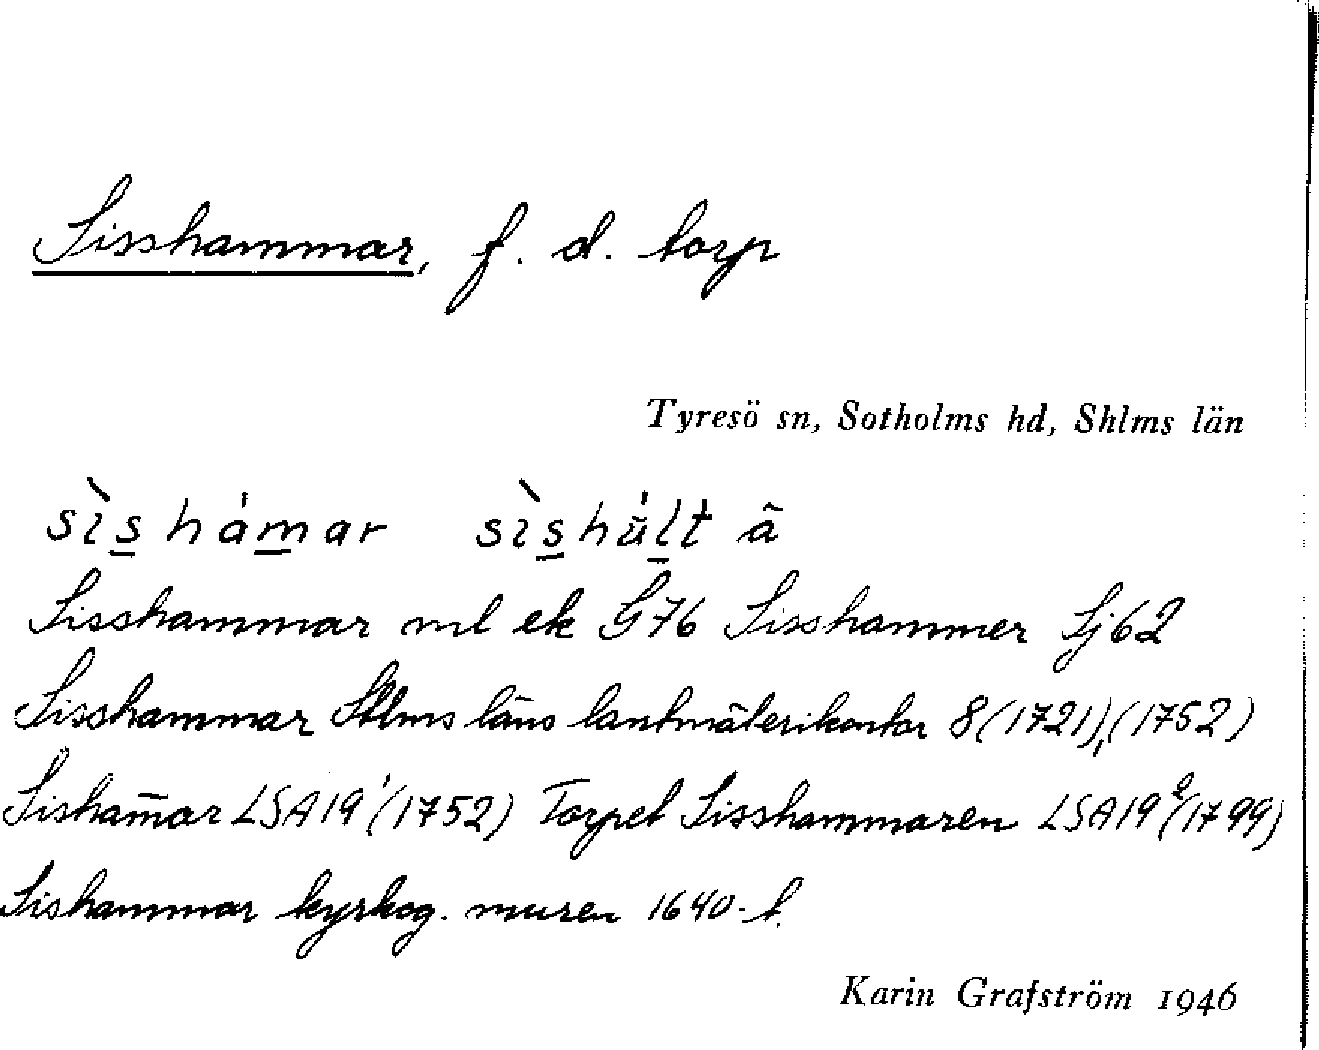 Sisshammar, f. d. torp
Tyresö sn, Sotholms hd, Shlms län
sìs hámar sìshúlt ã
Sisshammar ml ek G76 Sisshammer Sj62
Sisshammar Sthlms läns lantmäterikontor 8(1721),(1752)
Sisham̄ar LSA19¹(1752) Torpet Sisshammaren LSA19²(1799)
Sishammar kyrkog. muren 1640-t.
Karin Grafström 1946